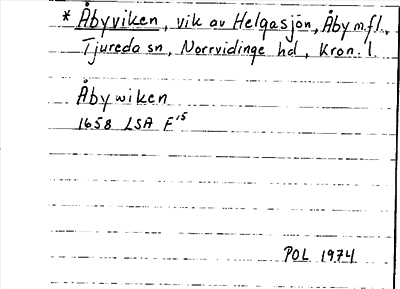 * Åbyviken, vik av Helgasjön, Åby m.fl.,
Tjureda sn, Norrvidinge hd, Kron. l.
Åbywiken
1658 LSA F¹⁵
POL 1974